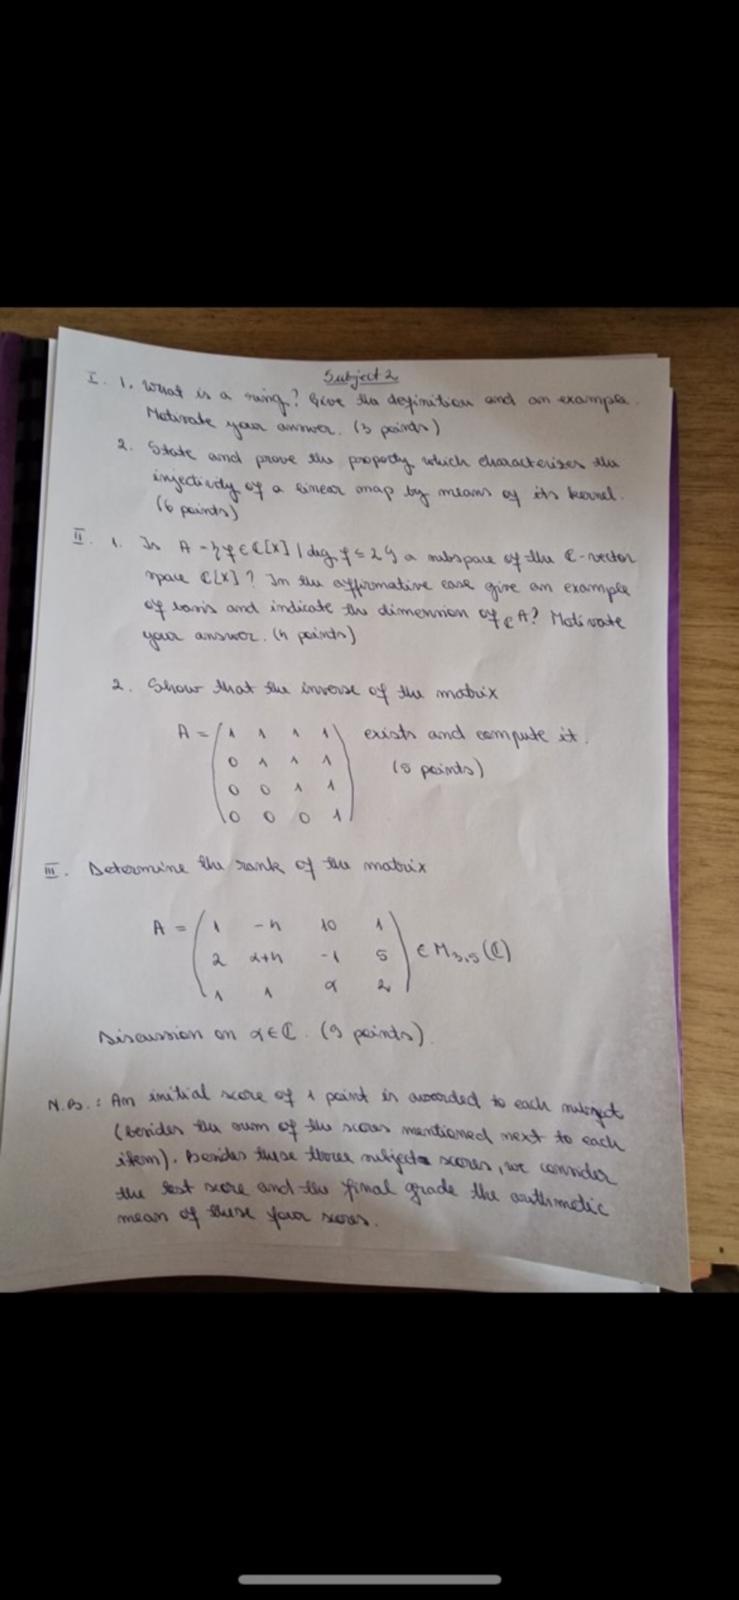 Subject 2
I. 1. What is a ring? Give the definition and an example.
Motivate your answer. (3 points)
2. State and prove the property which characterizes the
injectivity of a linear map by means of its kernel.
(6 points)
II. 1. Is A = {f ∈ ℂ[X] | deg f ≤ 2} a subspace of the ℂ-vector
space ℂ[X]? In the affirmative case give an example
of basis and indicate the dimension of ℂA? Motivate
your answer. (4 points)
2. Show that the inverse of the matrix
A = ( 1 1 1 1 ) exists and compute it.
0 1 1 1 (5 points)
0 0 1 1
0 0 0 1
III. Determine the rank of the matrix
A = ( 1 -4 10 1 )
2 α+4 -1 5 ∈ M3,5(ℂ)
1 1 α 2
Discussion on α ∈ ℂ. (9 points)
N.B.: An initial score of 1 point is awarded to each subject
(besides the sum of the scores mentioned next to each
item). Besides these three subject scores, we consider
the test score and the final grade the arithmetic
mean of these four scores.